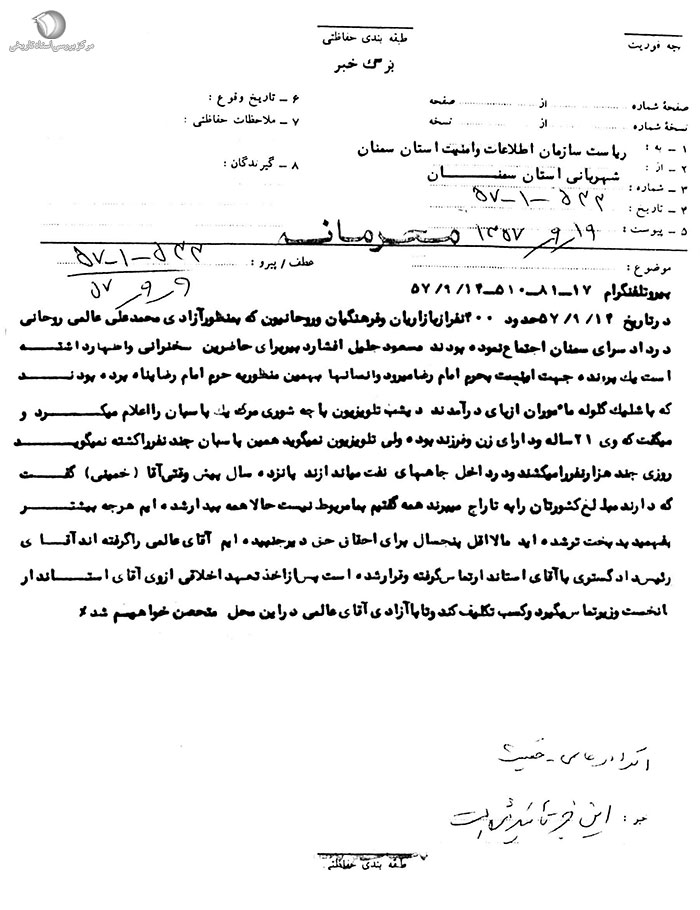 مرکز بررسی اسناد تاریخی
طبقه بندی حفاظتی
برگ خبر
چه فوریت
صفحهٔ شماره از صفحه
نسخهٔ شماره از نسخه
۱ - به : ریاست سازمان اطلاعات وامنیت استان سمنان
۲ - از : شهربانی استان سمنان
۳ - شماره : ۵۲۲-۱-۵۷
۴ - تاریخ :
۵ - پیوست : ۱۹/۹/۱۳۵۷
۶ - تاریخ وقوع :
۷ - ملاحظات حفاظتی :
۸ - گیرندگان :
محرمانه
موضوع : عطف / پیرو : ۵۲۲-۱-۵۷
پیروتلفنگرام ۱۷-۸۱-۵۱۰-۵۷/۹/۱۴
درتاریخ ۵۷/۹/۱۴ حدود ۴۰۰ نفرازبازاریان وفرهنگیان وروحانیون که بمنظورآزادی محمدعلی عالمی روحانی
درداد سرای سمنان اجتماع نموده بودند مسعود جلیل افشارد بیربرای حاضرین سخنرانی واظهارداشته
است یک پرنده جهت امنیت بحرم امام رضامیرود وانسانها بهمین منظوربه حرم امام رضاپناه برده بودند
که باشلیک گلوله مأموران ازپای درآمدند دیشب تلویزیون باچه شوری مرگ یک پاسبان رااعلام میکرد و
میگفت که وی ۲۱ ساله ودارای زن وفرزند بوده ولی تلویزیون نمیگوید همین پاسبان چند نفرراکشته نمیگوید
روزی چند هزارنفررامیکشند ودرداخل چاههای نفت میاندازند پانزده سال پیش وقتی آقا (خمینی) گفت
که دارند مبالغ کشورتان رابه تاراج میبرند همه گفتیم بمامربوط نیست حالاهمه بیدارشده ایم هرچه بیشتر
بفهمید بدبخت ترشده اید مالااقل پنجسال برای احقاق حق دیرجنبیده ایم آقای عالمی راگرفته اند آقای
رئیس دادگستری باآقای استاندارتماس گرفته وقرارشده است پس ازاخذ تعهد اخلاقی ازوی آقای استاندار
بانخست وزیرتماس بگیرد وکسب تکلیف کند وتاباآزادی آقای عالمی دراین محل متحصن خواهیم شد٪
این خبر تائید شده است
طبقه بندی حفاظتی